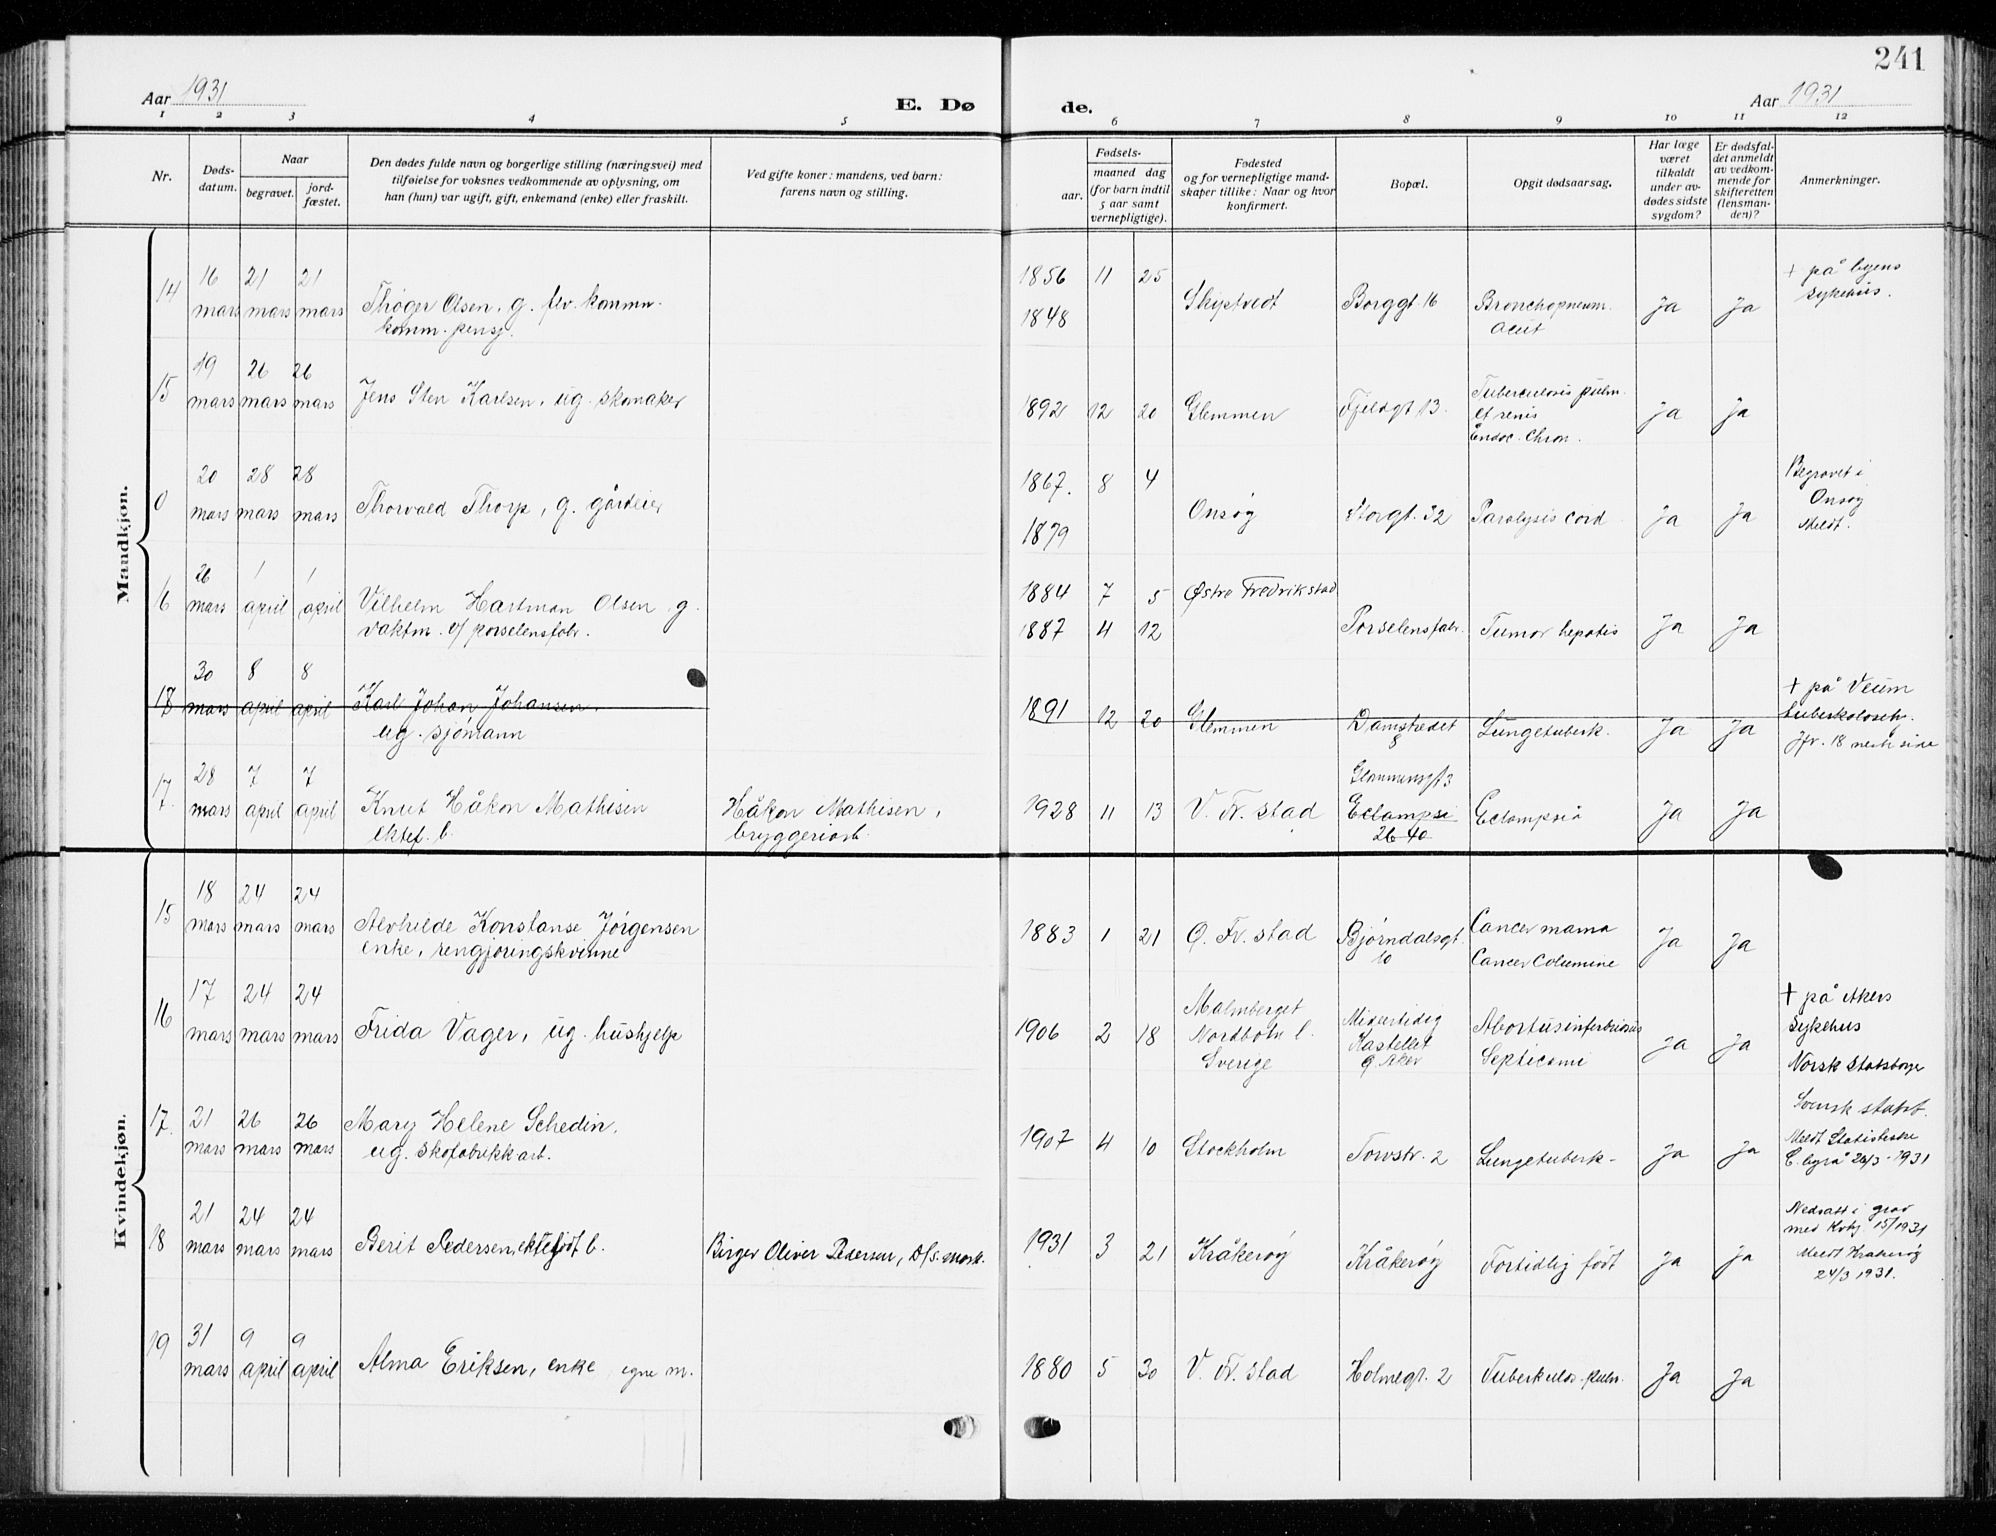 241
Aar 1931
E. Dø de.
Aar 1931
1 2 3 4 5 6 7 8 9 10 11 12
Nr.
Døds-
datum.
Naar
begravet.
jord-
fæstet.
Den dødes fulde navn og borgerlige stilling (næringsvei) med
tilføielse for voksnes vedkommende av oplysning, om
han (hun) var ugift, gift, enkemand (enke) eller fraskilt.
Ved gifte koner: mandens, ved barn:
farens navn og stilling.
Fødsels-
aar.
maaned dag
(for barn indtil
5 aar samt
vernepligtige).
Fødested
og for vernepligtige mand-
skaper tillike: Naar og hvor
konfirmert.
Bopæl.
Opgit dødsaarsag.
Har læge
været
tilkaldt
under av-
dødes sidste
sygdom?
Er dødsfal-
det anmeldt
av vedkom-
mende for
skifteretten
(lensman-
den)?
Anmerkninger.
Mandkjøn.
14 16 mars 21 mars 21 mars
Thøger Olsen, g. flv.
komm. pensj.
1856 11 25
1848
Skiptvedt
Borggt. 16
Bronchopneum.
acut
Ja Ja
+ på byens
sykehus.
15 19 mars 26 mars 26 mars
Jens Sten Karlsen, ug. skomaker
1892 12 20
Glemmen
Fjeldgt. 13.
Tuberculosis pulm.
et renis
Endoc. Chron.
Ja Ja
0 20 mars 28 mars 28 mars
Thorvald Thorp, g. gårdeier
1867. 8 4
1879
Onsøy
Storgt. 32
Paralysis cord
Ja Ja
Begravet i
Onsøy
Meldt.
16 26 mars 1 april 1 april
Vilhelm Hartman Olsen g.
vaktm. v/ porselensfabr.
1884 7 5
1887 4 12
Østre Fredrikstad
Porselensfabr.
Tumor hepatis
Ja Ja
17 30 mars 8 april 8 april
Karl Johan Johansen.
ug. sjømann
1891 12 20
Glemmen
Damstredet
8
Lungetuberk.
Ja Ja
+ på Veum
tuberkulosehj.
Jfr. 18 neste side
17. 28 mars 7 april 7 april
Knut Håkon Mathisen
ektef. b.
Håkon Mathisen,
bryggeriarb.
1928 11 13
V. Fr. stad
Glommensgt 3
Eclampsi
26 40
Eclampsia
Ja Ja
Kvindekjøn.
15 18 mars 24 mars 24 mars
Alvhilde Konstanse Jørgensen
enke, rengjøringskvinne
1883 1 21
Ø. Fr. stad
Bjørndalsgt.
10
Cancer mama
Cancer Columine
Ja Ja
16 17 mars 24 mars 24 mars
Frida Vager, ug. hushjelp
1906 2 18
Malmberget
Nordbotn l.
Sverige
Midlertidig
Kastellet
Ø. Aker
Abortus infectiosus
Septicemi
Ja Ja
+ på Akers
sykehus
Norsk Statsborger
17. 21 mars 26 mars 26 mars
Mary Helene Schedin.
ug. skofabrikkarb.
1907 4 10
Stockholm
Torvstr. 2
Lungetuberk-
Ja Ja
Svensk statsb.
Meldt Statistiske
C. byrå 24/3-1931
18 21 mars 24 mars 24 mars
Berit Pedersen, ektefødt b.
Birger Oliver Pedersen, D/s.
1931 3 21
Kråkerøy
Kråkerøy
Fortidlig født
Ja Ja
Nedsatt i grav
med Kvkj. 15/1931
Meldt Kråkerøy
24/3 1931.
19 31 mars 9 april 9 april
Alma Eriksen, enke, egne m.
1880 5 30
V. Fr. stad
Holmegt. 2
Tuberkulos. pulm.
Ja Ja